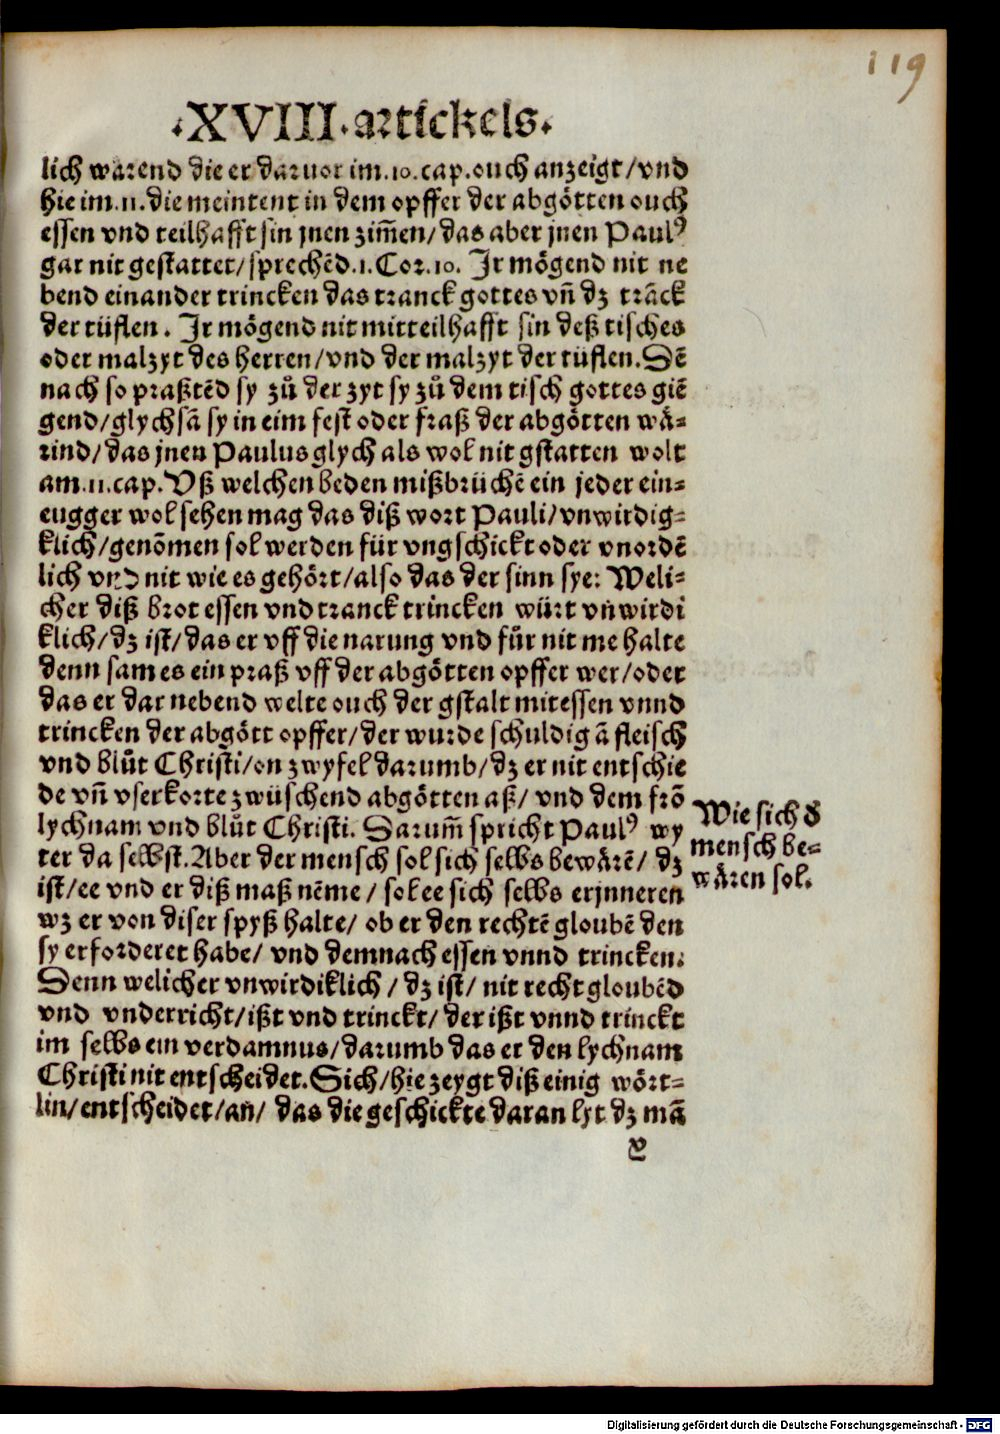 119
·XVIII·artickels·
lich warend die er daruor im.10.cap.ouch anzeigt/vnd
hie im.11.die meintent in dem opffer der abgötten ouch
essen vnd teilhafft sin jnen zim̃en/das aber jnen Paulꝰ
gar nit gestattet/sprechẽd.1.Cor.10. Jr mögend nit ne
bend einander trincken das tranck gottes vñ dz trãck
der tüflen. Jr mögend nit mitteilhafft sin deß tisches
oder malzyt des herren/vnd der malzyt der tüflen.Dẽ
nach so praßtẽd sy zů der zyt sy zů dem tisch gottes giẽ
gend/glychsã sy in eim fest oder fraß der abgötten wå⸗
rind/das jnen Paulus glych als wol nit gstatten wolt
am.11.cap.Vß welchen beden mißbrüchẽ ein jeder ein⸗
eugger wol sehen mag das diß wort Pauli/vnwirdig⸗
klich/genõmen sol werden für vngschickt oder vnordẽ
lich vnd nit wie es gehört/also das der sinn sye: Weli⸗
cher diß brot essen vnd tranck trincken würt vnwirdi
klich/dz ist/das er vff die narung vnd für nit me halte
denn sam es ein praß vff der abgötten opffer wer/oder
das er dar nebend welte ouch der gstalt mitessen vnnd
trincken der abgött opffer/der wurde schuldig ã fleisch
vnd blůt Christi/on zwyfel darumb/dz er nit entschie
de vñ vserkorte zwüschend abgötten aß/ vnd dem frõ
lychnam vnd blůt Christi. Darum̃ spricht Paulꝰ wy
ter da selbst.Aber der mensch sol sich selbs bewärẽ/ dz
ist/ee vnd er diß maß nẽme/ sol ee sich selbs erjnneren
wz er von diser spyß halte/ ob er den rechtẽ gloubẽ den
sy erforderet habe/ vnd demnach essen vnnd trincken.
Denn welicher vnwirdiklich/ dz ist/ nit recht gloubẽd
vnd vnderricht/ißt vnd trinckt/ der ißt vnnd trinckt
im selbs ein verdamnus/darumb das er den lychnam
Christi nit entscheidet.Sich/hie zeygt diß einig wört⸗
lin/entscheidet/an/ das die geschickte daran lyt dz mã
Wie sich d̕
mensch be⸗
wären sol.
Digitalisierung gefördert durch die Deutsche Forschungsgemeinschaft - DFG